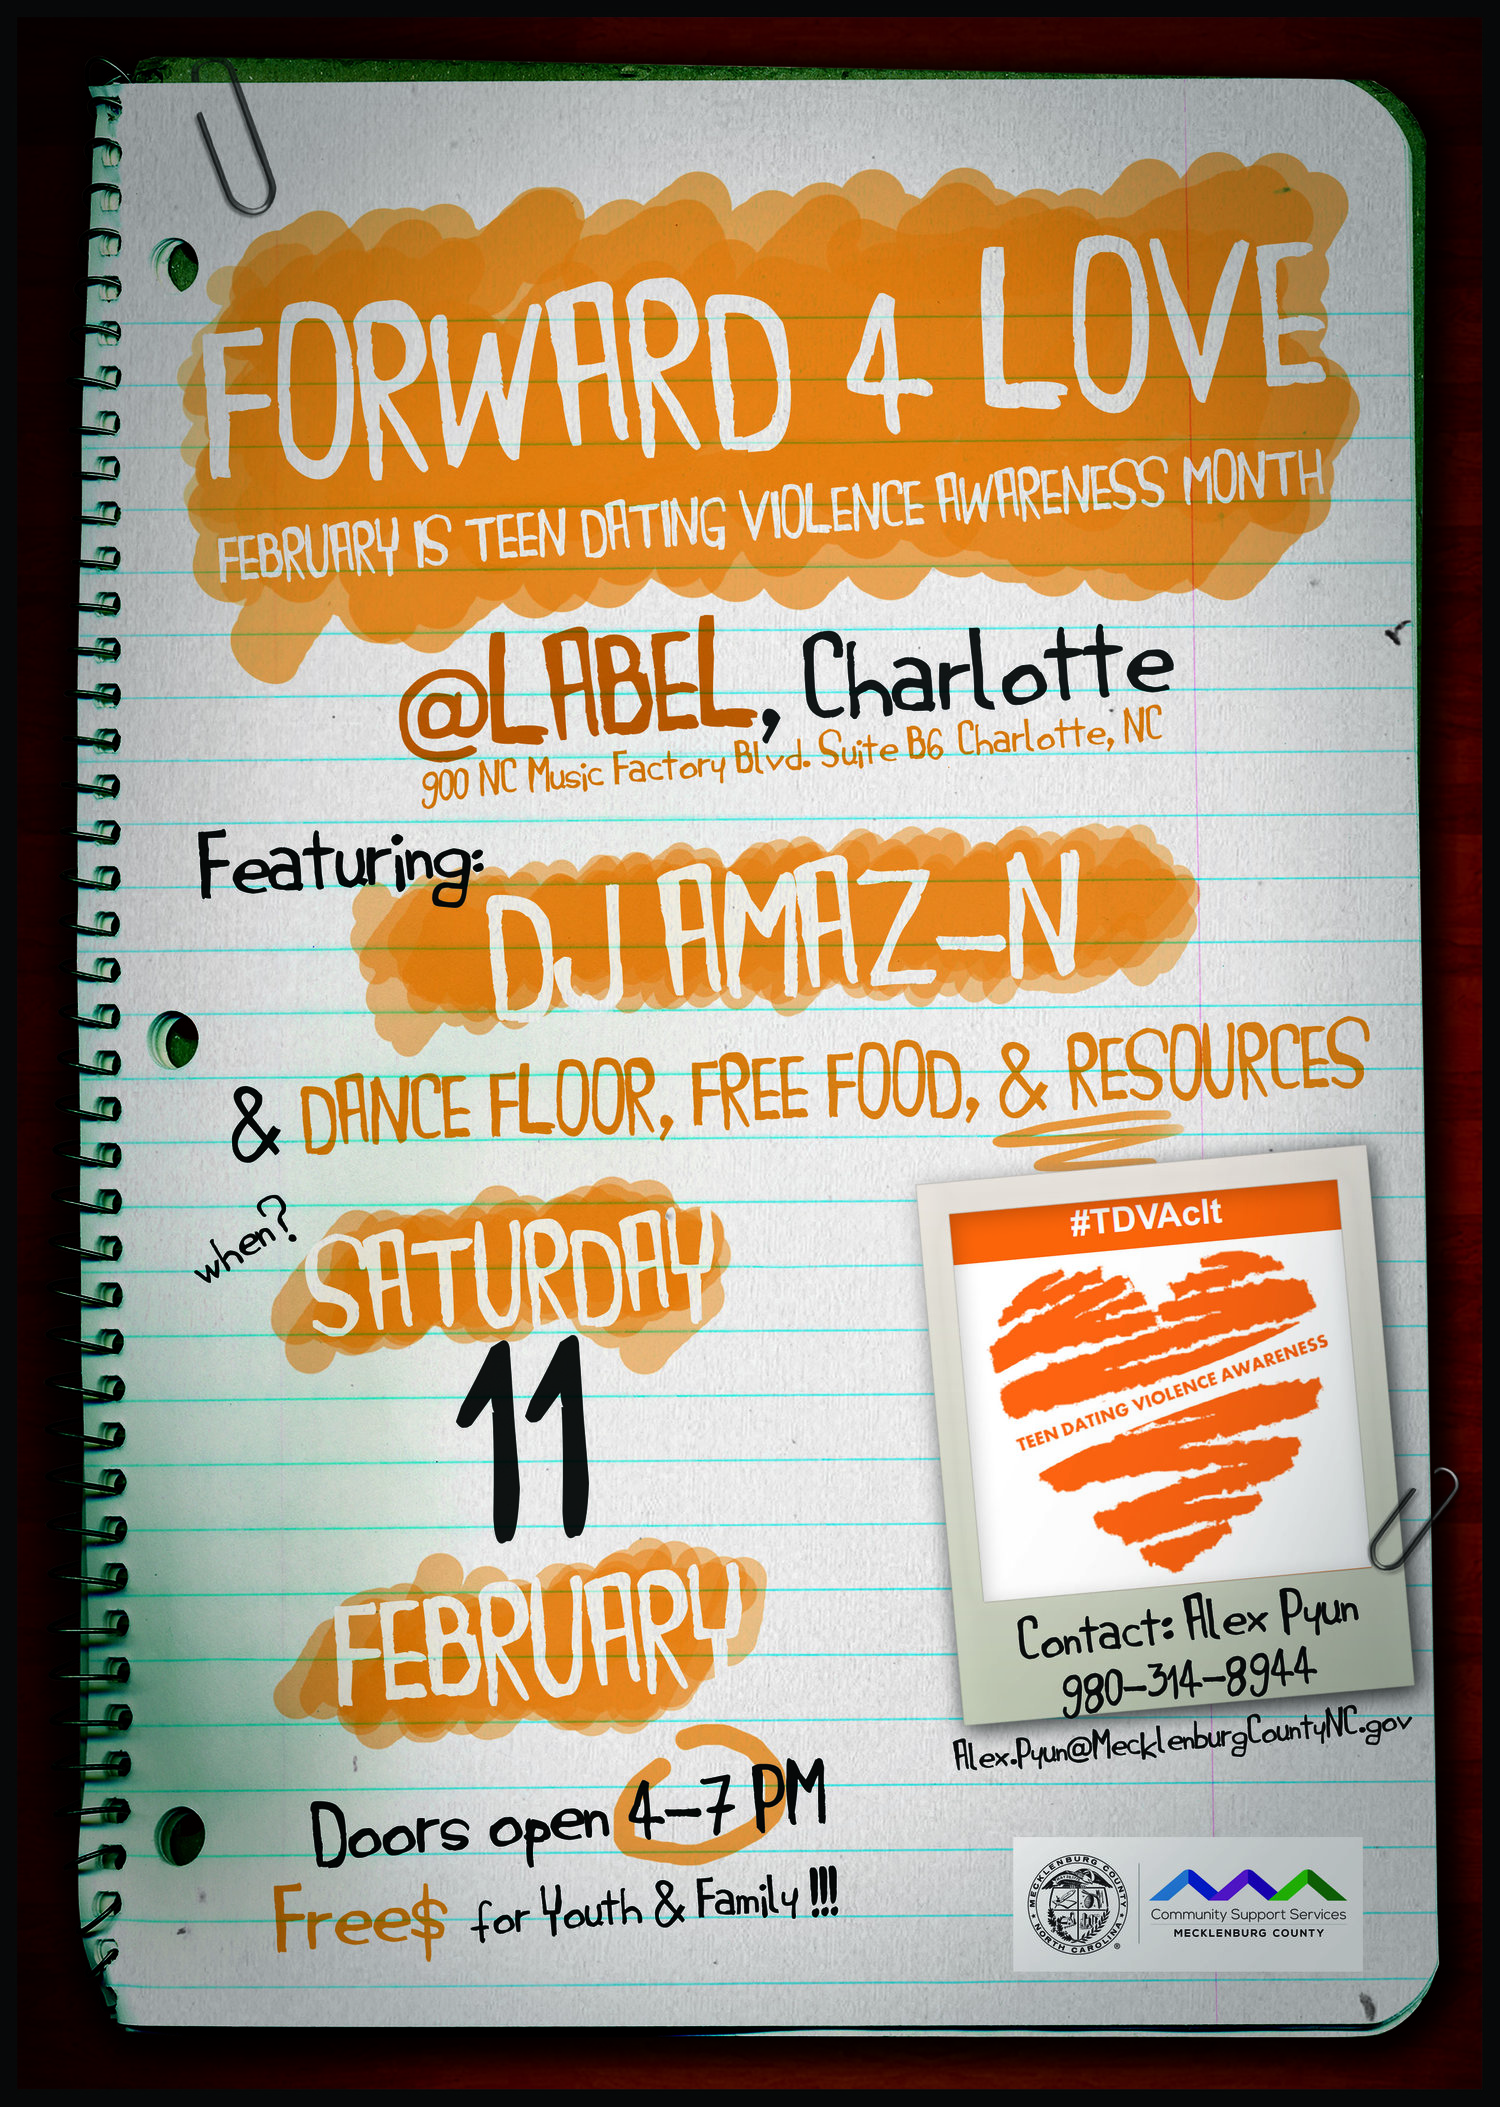 FORWARD 4 LOVE
FEBRUARY IS TEEN DATING VIOLENCE AWARENESS MONTH
@LABEL, Charlotte
900 NC Music Factory Blvd. Suite B6 Charlotte, NC
Featuring:
DJ AMAZ-N
& DANCE FLOOR, FREE FOOD, & RESOURCES
when?
SATURDAY
11
FEBRUARY
Doors open 4-7 PM
Free$ for Youth & Family !!!
#TDVAclt
TEEN DATING VIOLENCE AWARENESS
Contact: Alex Pyun
980-314-8944
Alex.Pyun@MecklenburgCountyNC.gov
MECKLENBURG COUNTY
NORTH CAROLINA
Community Support Services
MECKLENBURG COUNTY